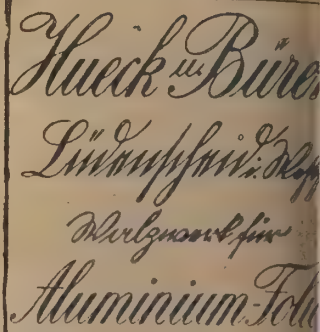 Hueck u. Büre
Lüdenscheid i. Westf
Walzwerk für
Aluminium-Foli